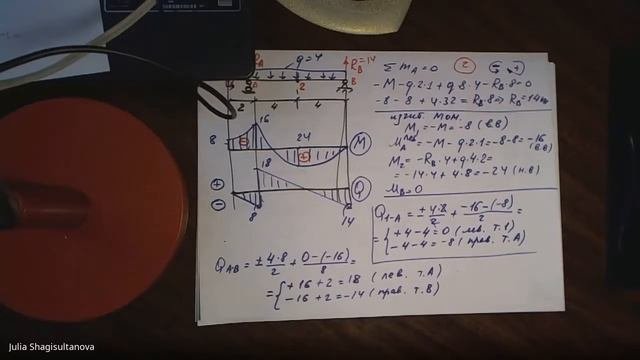 q=4
R_B=14
B
2 4 4
16
24
8
M
18
Q
8
14
Σ m_A = 0
2
-M - q·2·1 + q·8·4 - R_B·8 = 0
-8 - 8 + 4·32 = R_B·8 ⇒ R_B = 14
изгиб. мом.
M_1 = -M = -8 (в.в)
M_A^лев = -M - q·2·1 = -8-8 = -16
(в.в)
M_2 = -R_B·4 + q·4·2 =
= -14·4 + 4·8 = -24 (н.в)
M_B = 0
Q_1-A = ±4·8/2 + -16-(-8)/2 =
= { +4-4=0 (лев. т.1)
-4-4=-8 (прав. т.A)
Q_AB = ±4·8/2 + 0-(-16)/8 =
= { +16+2=18 (лев. т.A)
-16+2=-14 (прав. т.B)
Julia Shagisultanova